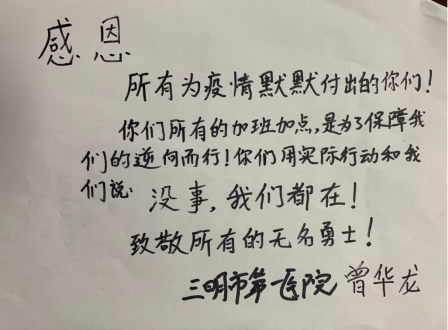 感恩
所有为疫情默默付出的你们！
你们所有的加班加点，是为了保障我
们的逆向而行！你们用实际行动和我
们说：没事，我们都在！
致敬所有的无名勇士！
三明市第一医院 曾华龙